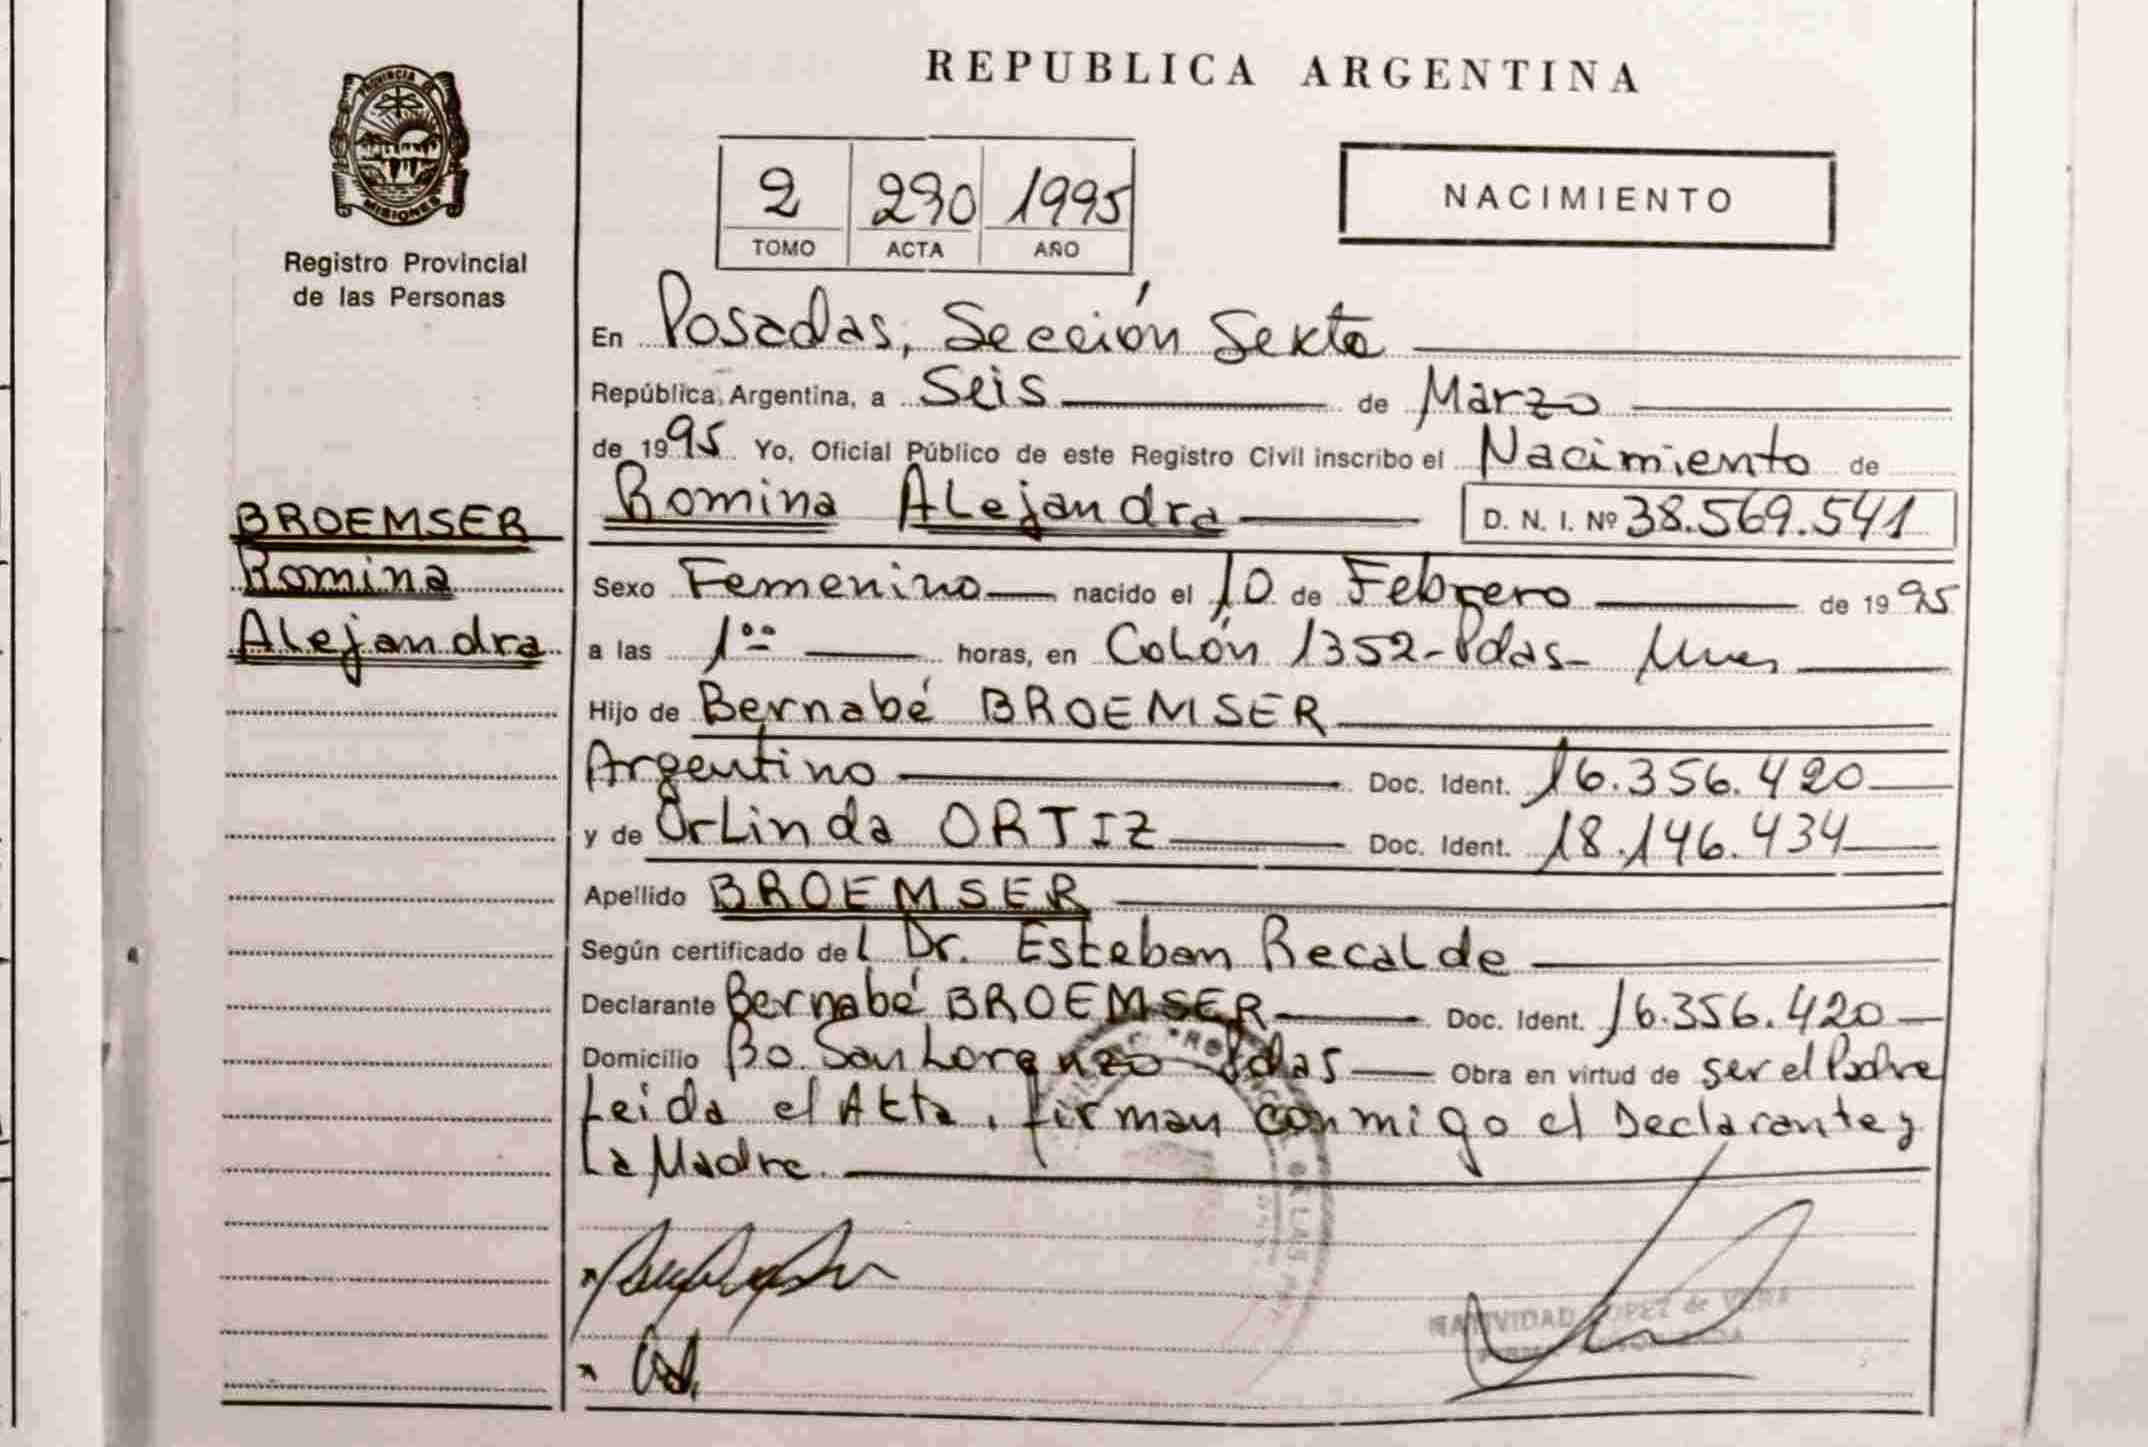 REPUBLICA ARGENTINA
PROVINCIA DE
MISIONES
Registro Provincial
de las Personas
2 290 1995
TOMO ACTA AÑO
NACIMIENTO
En Posadas, Sección Sexta
República Argentina, a Seis de Marzo
de 1995 Yo, Oficial Público de este Registro Civil inscribo el Nacimiento de
Romina Alejandra D. N. I. Nº 38.569.541
BROEMSER
Romina
Alejandra
Sexo Femenino nacido el 10 de Febrero de 1995
a las 1⁰⁰ horas, en Colón 1352-Pdas-
Hijo de Bernabé BROEMSER
Argentino Doc. Ident. 16.356.420
y de OrLinda ORTIZ Doc. Ident. 18.146.434
Apellido BROEMSER
Según certificado del Dr. Esteban Recalde
Declarante Bernabé BROEMSER Doc. Ident. 16.356.420
Domicilio Bo. San Lorenzo Pdas Obra en virtud de ser el Padre
Leida el Acta, firman conmigo el Declarante y
La Madre.
DE LAS
NATIVIDAD LOPEZ de VERA